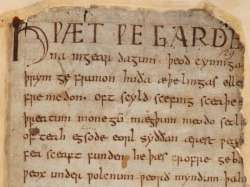 HǷÆT ǷE GARDE
na ingear dagum. þeod cyninga
þrym ge frunon huða æþelingas elle
fre medon. oft scyld scefing sceaþe
þreatum monegū mægþum meodo setl
of teah egsode eorl syððan ærest ƿear
fea sceaft funden he þæs frofre geba
ƿeox under ƿolcnum ƿeorð myndum þah